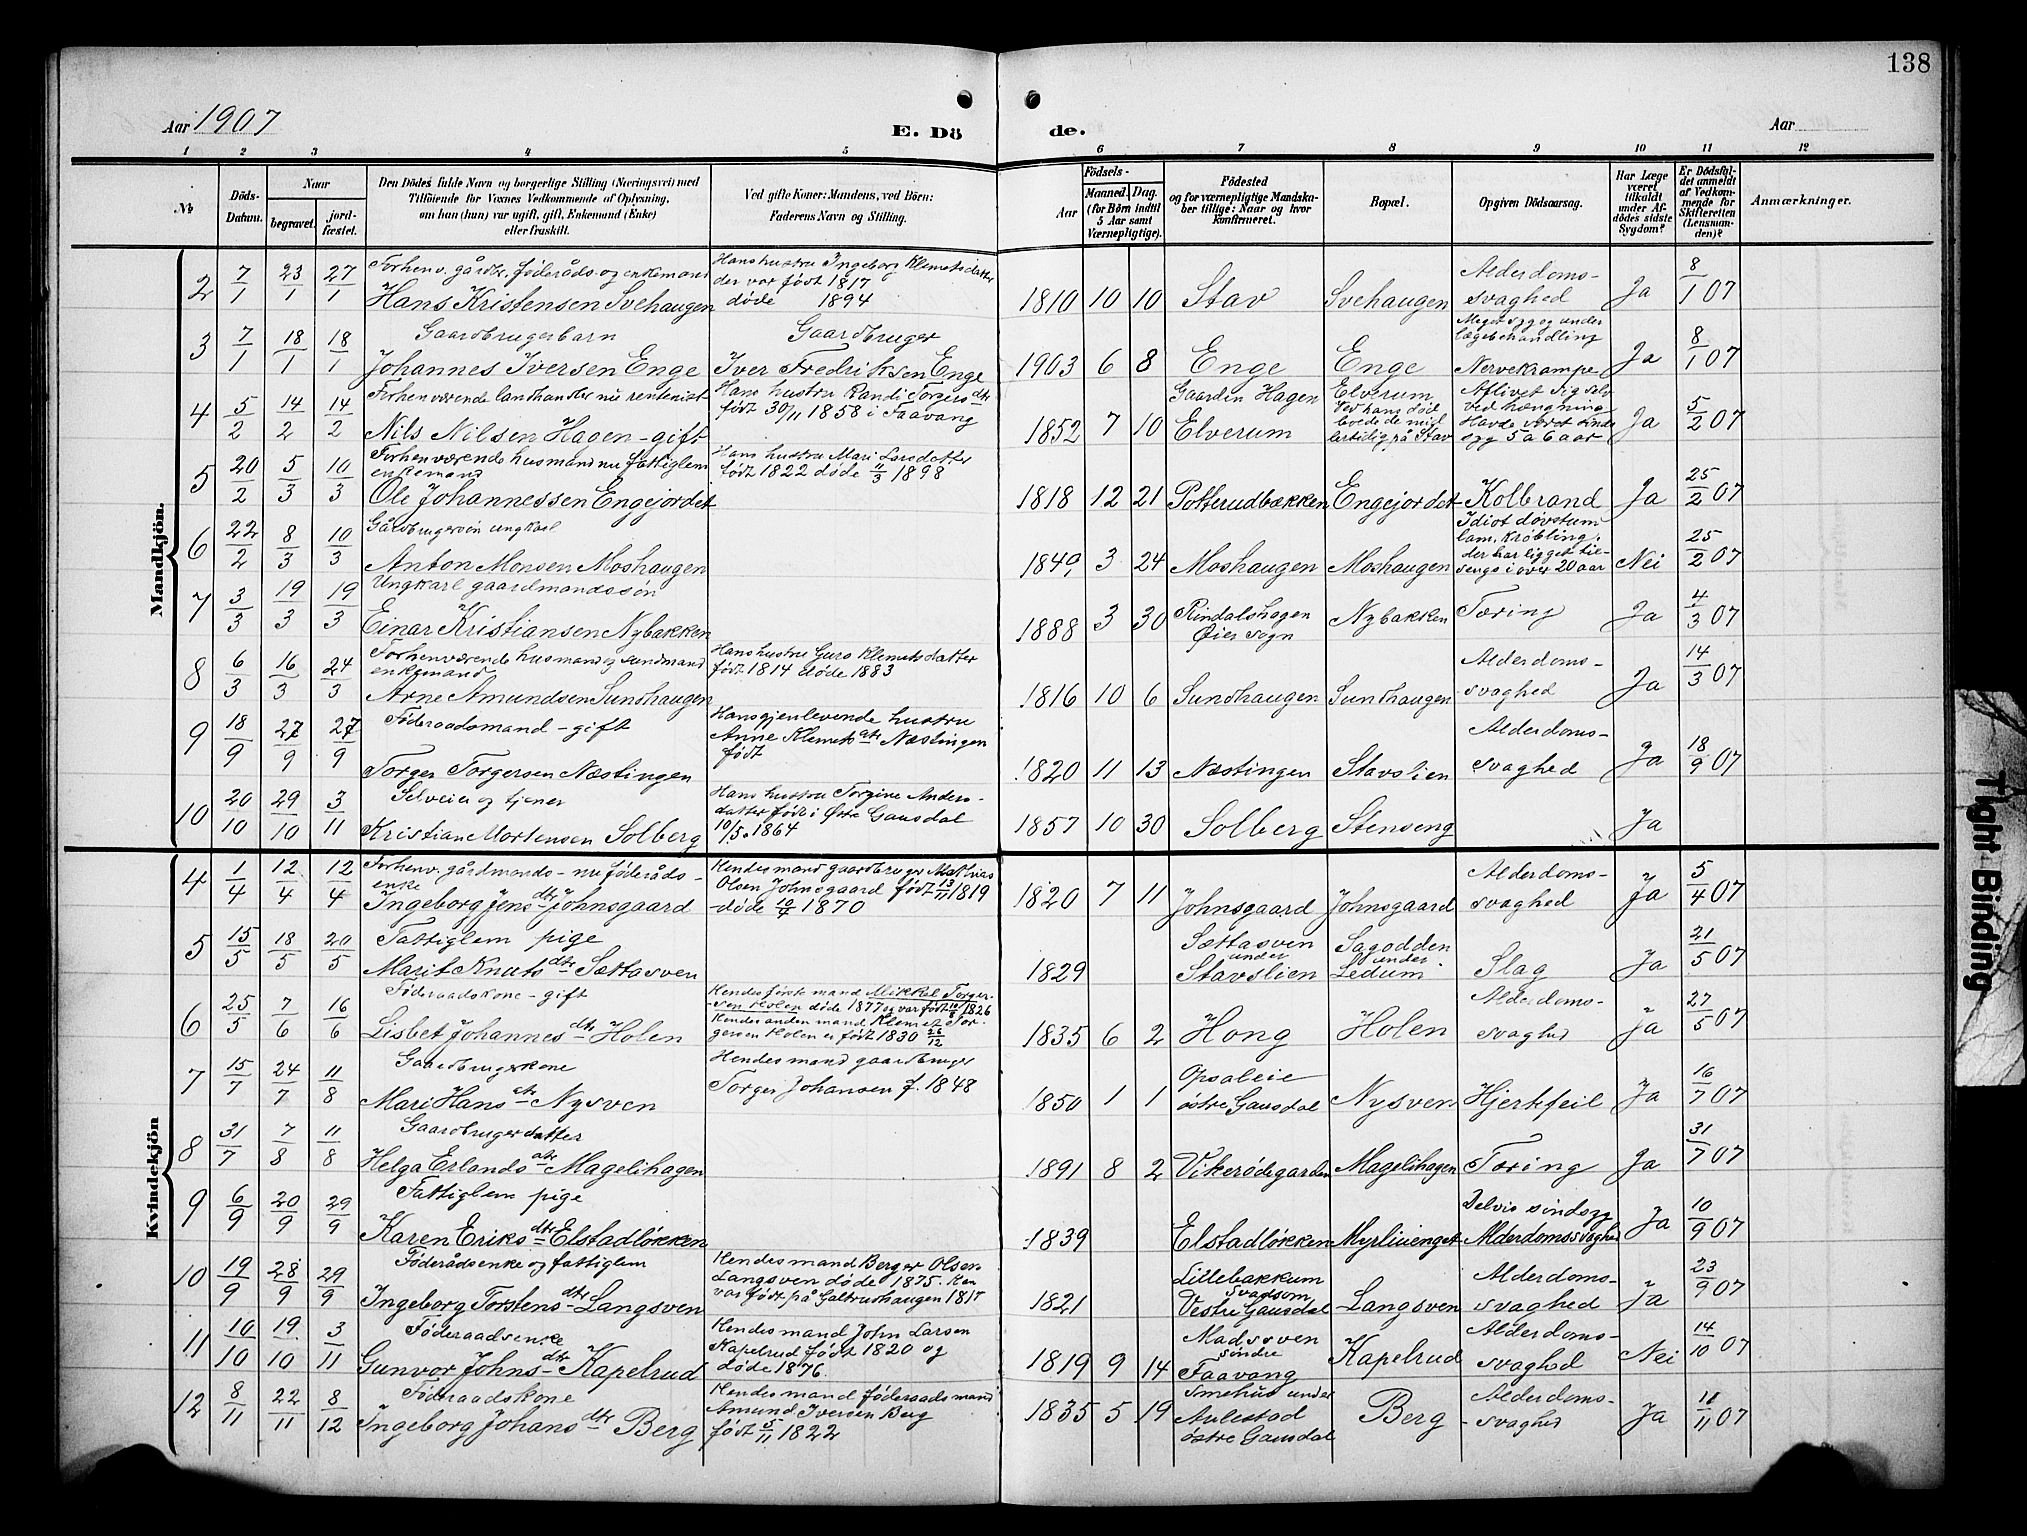 138
Aar 1907
E. Dö
de.
Aar
1 2 3 4 5 6 7 8 9 10 11 12
№
Döds-Datum.
Naar
begravet.
jord-fæstet.
Den Dödes fulde Navn og borgerlige Stilling (Næringsvei) med
Tilföiende for Voxnes Vedkommende af Oplysning,
om han (hun) var ugift, gift, Enkemand (Enke)
eller fraskilt.
Ved gifte Koner: Mandens, ved Börn:
Faderens Navn og Stilling.
Födsels-
Aar
Maaned. Dag.
(for Börn indtil
5 Aar samt
Værnepligtige).
Födested
og for værnepligtige Mandska-
ber tillige: Naar og hvor
konfirmeret.
Bopæl.
Opgiven Dödsaarsag.
Har Læge
været
tilkaldt
under Af-
dödes sidste
Sygdom?
Er Dödsfal-
det anmeldt
af Vedkom-
mende for
Skifteretten
(Lensman-
den)?
Anmærkninger.
Mandkjön.
2 7/1 23/1 27/1 Forhenv. gårdbr. føderåds- og enkemand
Hans Kristensen Svehaugen
Hans hustru Ingeborg Klemetsdatter
der var født 1817
døde 1894
1810 10 10 Stav Svehaugen Alderdoms-
svaghed Ja 8/1 07
3 7/1 18/1 18/1 Gaardbrugerbarn
Johannes Iversen Enge
Gaardbruger
Iver Fredriksen Enge
1903 6 8 Enge Enge
Meget syg og under
lægebehandling
Nervekrampe Ja 8/1 07
4 5/2 14/2 14/2 Forhenværende landhandler nu rentenist
Nils Nilsen Hagen - gift
Hans hustru Randi Torgersdtr
født 30/11 1858 i Faavang
1852 7 10 Gaarden Hagen
Elverum
Elverum
Ved hans død
boede de mid
lertidig på Stav
Aflivet sig selv
ved hængning
Havde været sinds
syg 5 a 6 aar Ja 5/2 07
5 20/2 5/3 10/3 Forhenværende husmand nu fattiglem
enkemand
Ole Johannessen Engejordet
Hans hustru Mari Larsdatter
født 1822 døde 11/3 1898
1818 12 21 Potterudbækken Engejordet Kolbrand Ja 25/2 07
6 22/2 8/3 10/3 Gårdbrugersøn ungkarl
Anton Monsen Moshaugen
1849 3 24 Moshaugen Moshaugen
Idiot døvstum
lam, krøbling,
der har ligget til-
sengs i over 20 aar Nei 25/2 07
7 3/3 19/3 19/3 Ungkarl gaardmandssøn
Einar Kristiansen Nybakken
1888 3 30 Rindalshagen
Øier sogn Nybakken Tæring Ja 4/3 07
8 6/3 16/3 24/3 Forhenværende husmand og sundmand
enkemand
Arne Amundsen Sundhaugen
Hans hustru Guro Klemetsdatter
født 1814 døde 1883
1816 10 6 Sundhaugen Sundhaugen Alderdoms-
svaghed Ja 14/3 07
9 18/9 27/9 27/9 Føderaadsmand - gift
Torger Torgersen Næstingen
Hans gjenlevende hustru
Anne Klemetsdtr Næstingen
født
1820 11 13 Næstingen Stavslien Alderdoms-
svaghed Ja 18/9 07
10 20/10 29/10 3/11 Selveier og tjener
Kristian Mortensen Solberg
Hans hustru Torgine Anders-
datter født i Østre Gausdal
10/5 1864
1857 10 30 Solberg Stenseng Ja
Kvindekjön
4 1/4 12/4 12/4 Forhenv. gårdmands- nu føderåds-
enke
Ingeborg Jensdtr Johnsgaard
Hendes mand gaardbruger Mathias
Olsen Johnsgaard født 13/11 1819
døde 10/4 1870
1820 7 11 Johnsgaard Johnsgaard Alderdoms-
svaghed Ja 5/4 07
5 15/5 18/5 20/5 Fattiglem pige
Marit Knutsdtr Sættasven
1829 Sættasven
under
Stavslien
Sagodden
under
Ledum Slag Ja 21/5 07
6 25/5 7/6 16/6 Føderaadskone - gift
Lisbet Johannesdtr Holen
Hendes første mand Mikkel Torger-
sen Holen døde 1877 og var født 10/8 1826
Hendes anden mand Klemet Tor-
gersen Holen er født 1830 26/12
1835 6 2 Hong Holen Alderdoms-
svaghed Ja 27/5 07
7 15/7 24/7 11/8 Gaardbrugerkone
Mari Hansdtr Nysven
Hendes mand gaardbruger
Torger Johansen f. 1848
1850 1 1 Opsaleie
østre Gausdal Nysven Hjertefeil Ja 16/7 07
8 31/7 7/8 11/8 Gaardbrugerdatter
Helga Erlandsdtr Magelihagen
1891 8 2 Vikerødegarden Magelihagen Tæring Ja 31/7 07
9 6/9 20/9 29/9 Fattiglem pige
Karen Eriksdtr Elstadløkken
1839 Elstadløkken Myrliuenget
Delvis sindssyg
Alderdomssvaghed Ja 10/9 07
10 19/9 28/9 29/9 Føderådsenke og fattiglem
Ingeborg Torstensdtr Langsven
Hendes mand Berger Olsen
Langsven døde 1875. Han
var født på Galtrudhaugen 1817
1821 Lillebakkum
Svadsom
Vestre Gausdal Langsven Alderdoms-
svaghed Ja 23/9 07
11 10/10 19/10 3/11 Føderaadsenke
Gunvor Johnsdtr Kapelrud
Hendes mand John Larsen
Kapelrud født 1820 og
døde 1876.
1819 9 14 Madssven
søndre
Faavang Kapelrud Alderdoms-
svaghed Nei 14/10 07
12 8/11 22/11 8/12 Føderaadskone
Ingeborg Johansdtr Berg
Hendes mand føderaadsmand
Amund Iversen Berg
født 5/11 1822
1835 5 19 Smehus under
Aulestad
østre Gausdal Berg Alderdoms-
svaghed Ja 11/11 07
Tight Binding